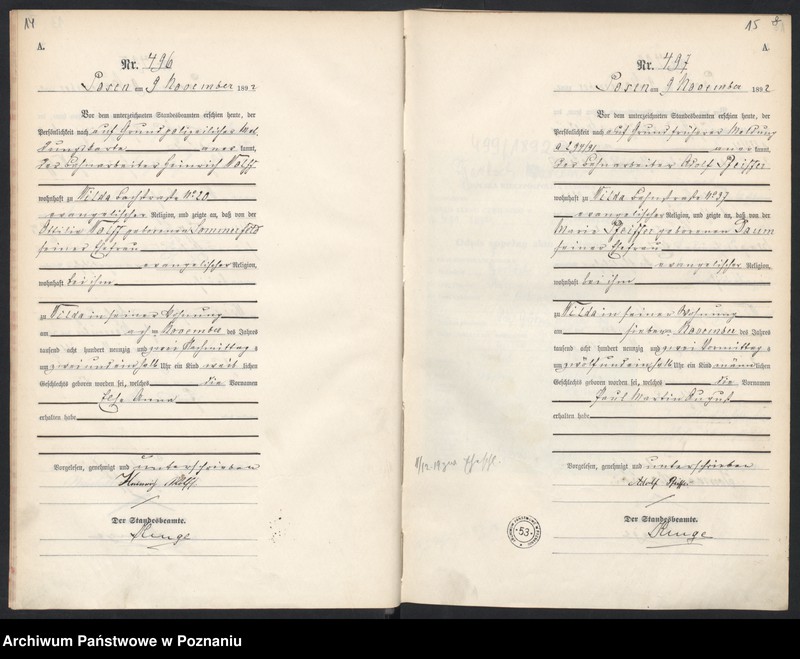 14
A.
Nr. 496
Posen am 9 November 1892
Vor dem unterzeichneten Standesbeamten erschien heute, der
Persönlichkeit nach auf Grund polizeilicher Mel-
dungskarte anerkannt,
der Bahnarbeiter Heinrich Wolff
wohnhaft zu Wilda Bachstraße No 20
evangelischer Religion, und zeigte an, daß von der
Ottilie Wolff geborenen Sommerfeld
seiner Ehefrau
evangelischer Religion,
wohnhaft bei ihm
zu Wilda in seiner Wohnung
am achten November des Jahres
tausend acht hundert neunzig und zwei Nachmittags
um zwei und ein halb Uhr ein Kind weiblichen
Geschlechts geboren worden sei, welches die Vornamen
Else Anna
erhalten habe
Vorgelesen, genehmigt und unterschrieben
Heinrich Wolff
Der Standesbeamte.
Kenge
15
8
A.
Nr. 497
Posen am 9 November 1892
Vor dem unterzeichneten Standesbeamten erschien heute, der
Persönlichkeit nach auf Grund früherer Meldung
anerkannt,
der Bahnarbeiter Adolf Pfeiffer
wohnhaft zu Wilda Bahnstraße No 37
evangelischer Religion, und zeigte an, daß von der
Marie Pfeiffer geborenen Daum
seiner Ehefrau
evangelischer Religion,
wohnhaft bei ihm
zu Wilda in seiner Wohnung
am sieben November des Jahres
tausend acht hundert neunzig und zwei Vormittags
um zwölf und ein halb Uhr ein Kind männlichen
Geschlechts geboren worden sei, welches die Vornamen
Paul Martin August
erhalten habe
Vorgelesen, genehmigt und unterschrieben
Adolf
Der Standesbeamte.
Kenge
53
Archiwum Państwowe w Poznaniu